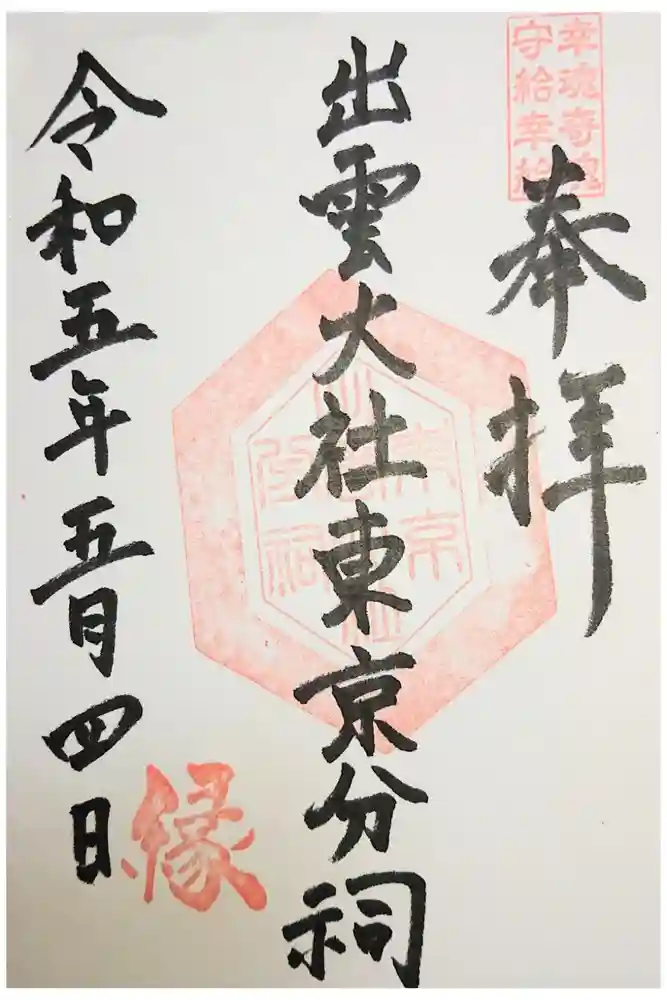 幸魂奇魂
守給幸給
奉拝
出雲大社東京分祠
令和五年五月四日
縁